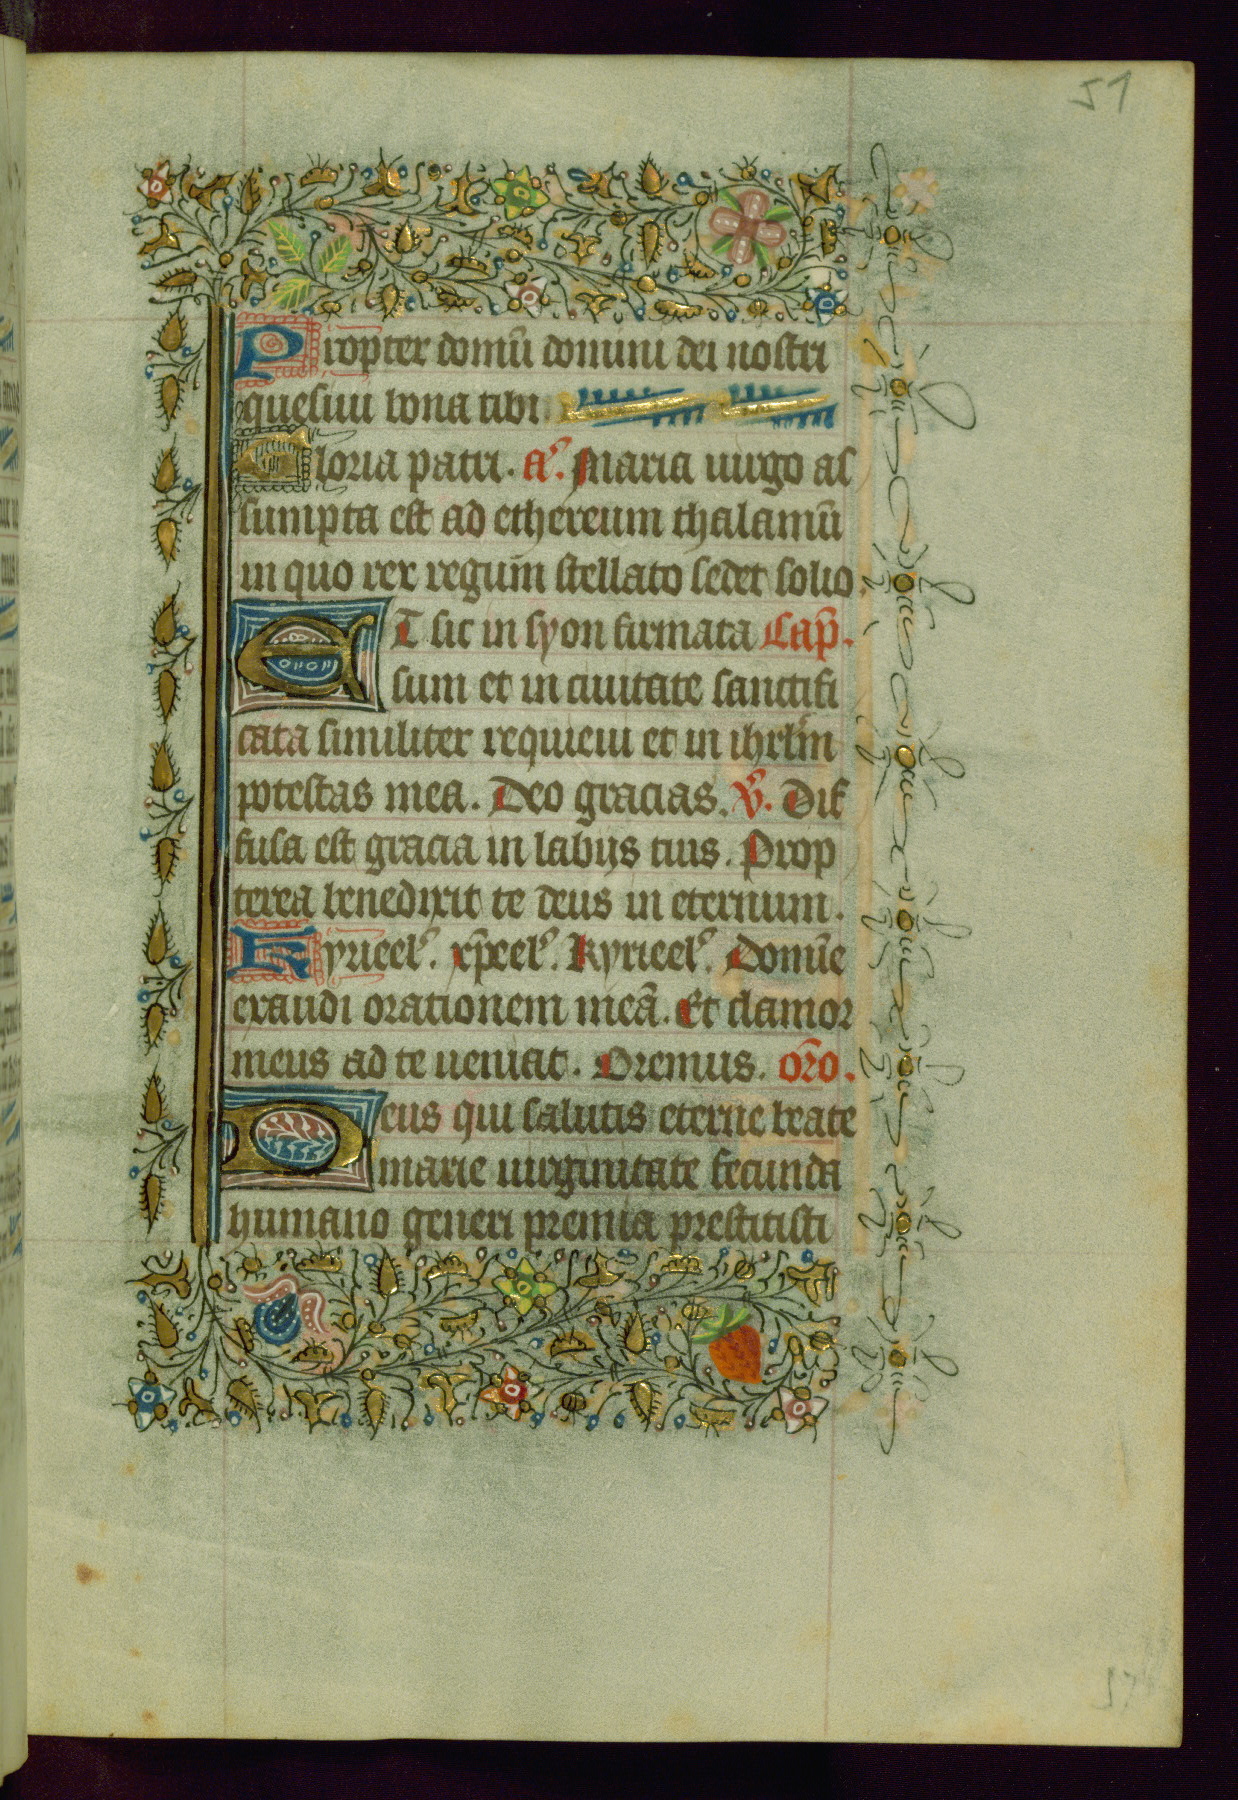 51
Propter domū domini dei nostri
quesiui bona tibi.
Gloria patri. a͛. Maria uirgo as
sumpta est ad ethereum thalamū
in quo rex regum stellato sedet solio.
ET sic in syon firmata Cap̄.
sum et in ciuitate sanctifi
cata similiter requieui et in ihrlm̄
potestas mea. Deo gracias. v͛. Dif
fusa est gracia in labijs tuis. Prop
terea benedixit te deus in eternum.
Kyrieel͛. xp̄eel͛. Kyrieel͛. Domīe
exaudi orationem meā. Et clamor
meus ad te ueniat. Oremus. or̄o.
Deus qui salutis eterne beate
marie uirginitate fecunda
humano generi premia prestitisti